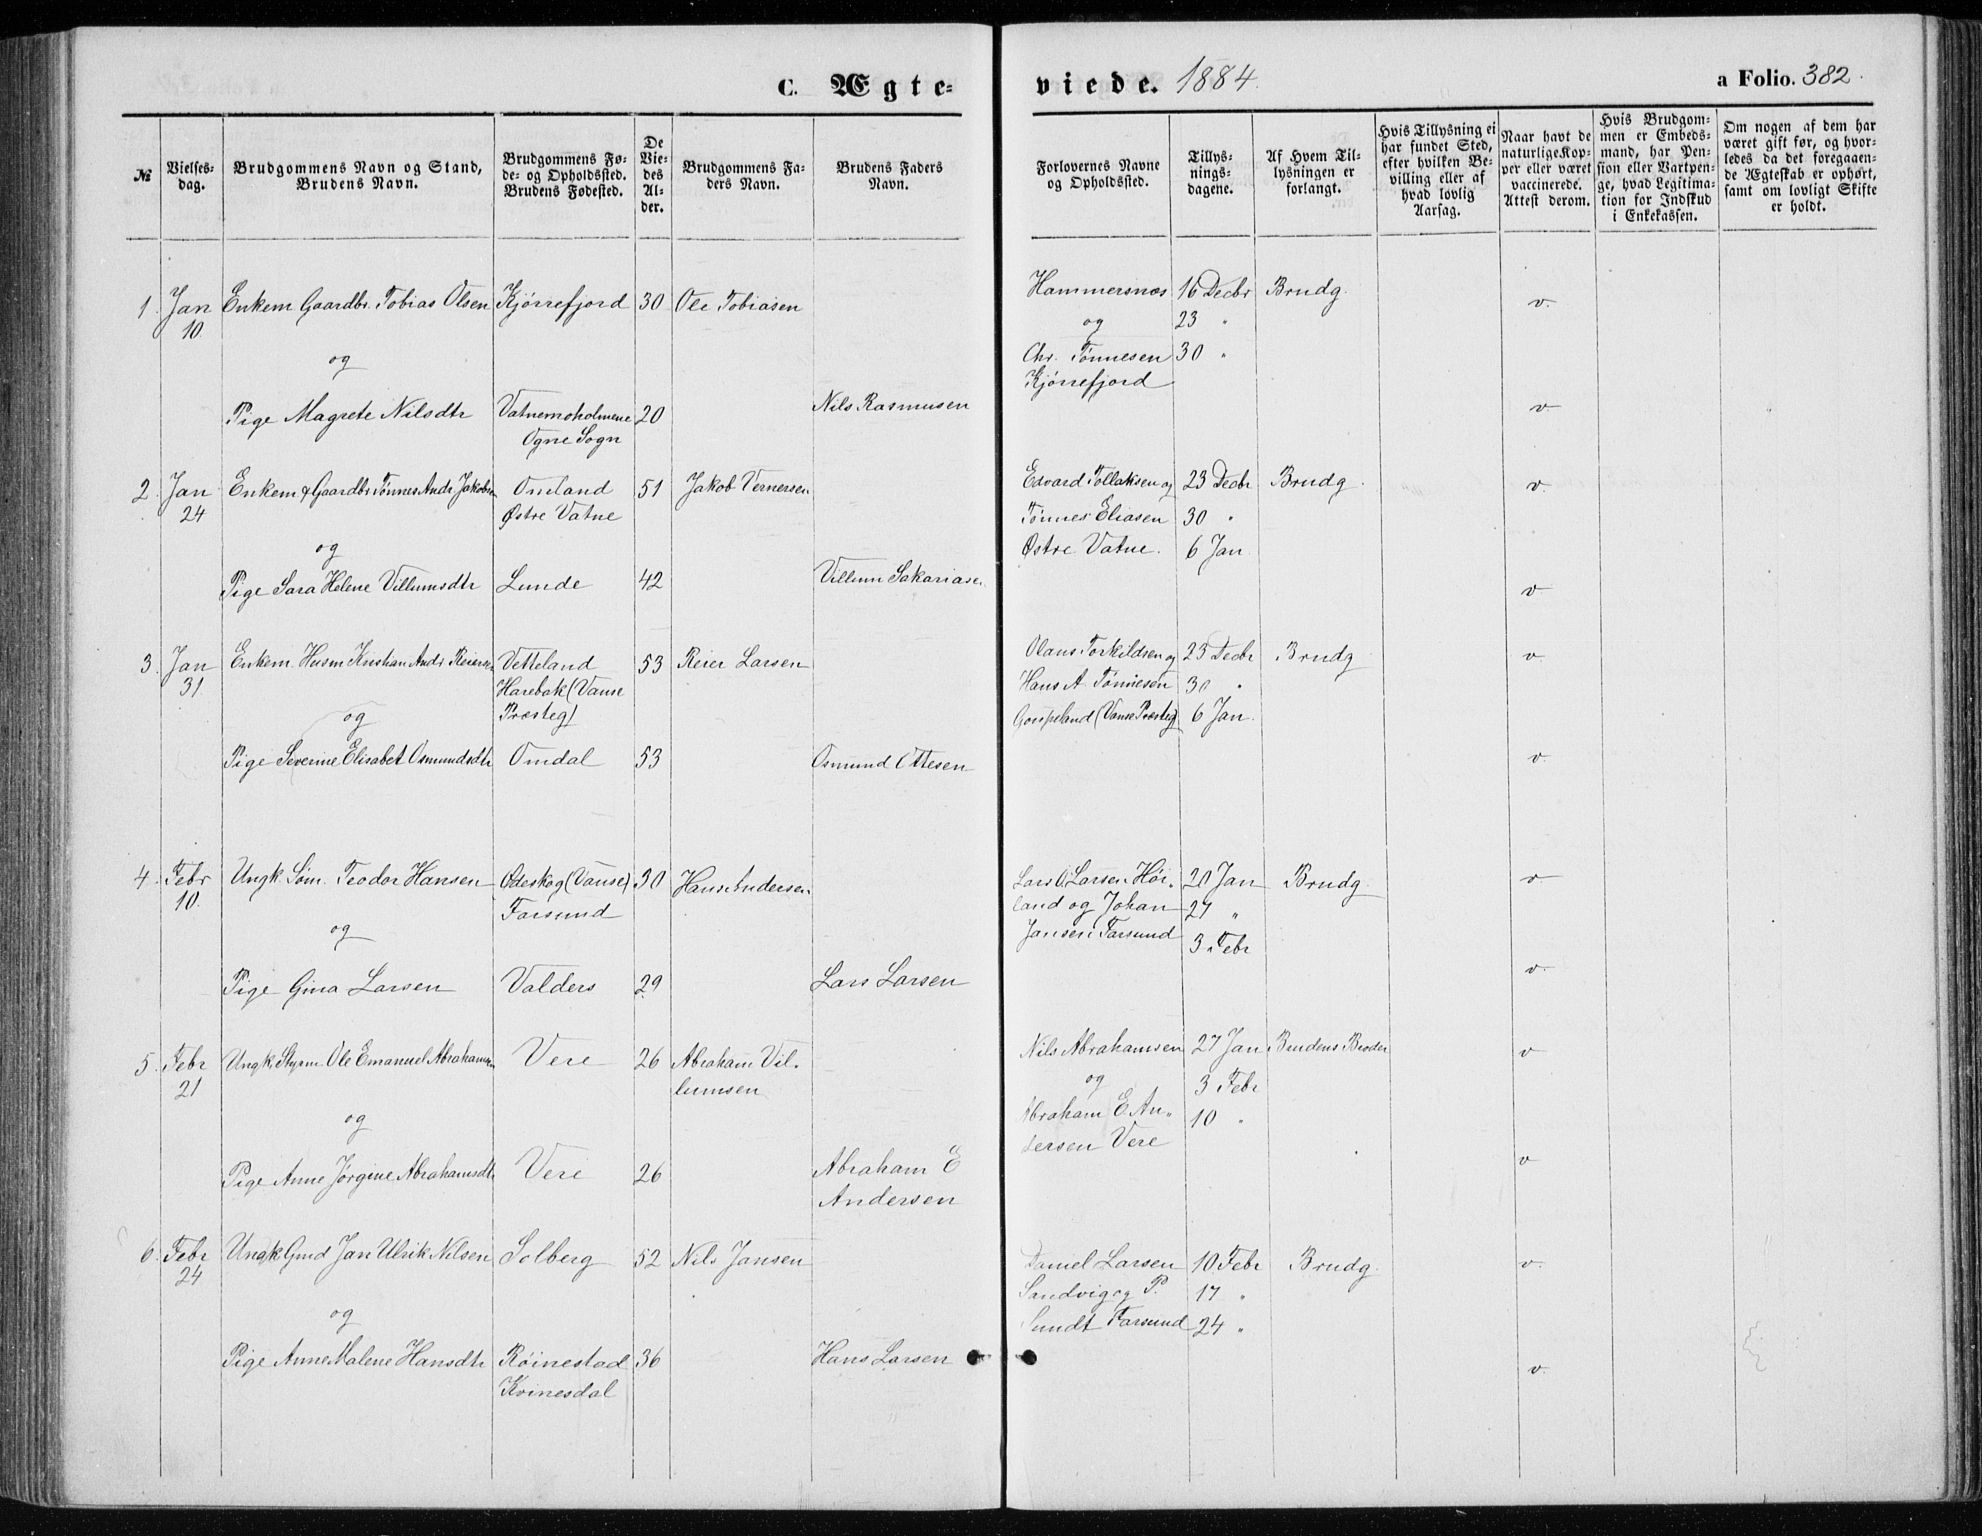 C. Ægte-
viede. 1884.
a Folio. 382.
№
Vielses-
dag.
Brudgommens Navn og Stand,
Brudens Navn.
Brudgommens Fø-
de- og Opholdssted.
Brudens Fødested.
De
Vie-
des
Al-
der.
Brudgommens Fa-
ders Navn.
Brudens Faders
Navn.
Forlovernes Navne
og Opholdssted.
Tillys-
nings-
dagene.
Af Hvem Til-
lysningen er
forlangt.
Hvis Tillysning ei
har fundet Sted,
efter hvilken Be-
villing eller af
hvad lovlig
Aarsag.
Naar havt de
naturlige Kop-
per eller været
vaccinerede.
Attest derom.
Hvis Brudgom-
men er Embeds-
mand, har Pen-
sion eller Vartpen-
ge, hvad Legitima-
tion for Indskud
i Enkekassen.
Om nogen af dem har
været gift før, og hvor-
ledes da det foregaaen-
de Ægteskab er ophørt,
samt om lovligt Skifte
er holdt.
1. Jan Enkem Gaardbr. Tobias Olsen Kjørrefjord 30 Ole Tobiasen Hammersnæs 16 Decbr Brudg. v.
10. og 23 "
og Chr. Tønnesen 30 "
Kjørrefjord
Pige Magrete Nilsdtr Vatnemoholmene 20 Nils Rasmusen v
Ogne Sogn
2. Jan Enkem & Gaardbr Tønnes Andr Jakobsen Omland 51 Jakob Vernersen Edvard Tollaksen og 23 Decbr Brudg. v.
24 Østre Vatne Tønnes Eliasen 30 "
og Østre Vatne. 6 Jan
Pige Sara Helene Villumsdtr Lunde 42 Villum Sakariasen v
3. Jan Enkem. Husm Kristian Andr Reiersen Vetteland 53 Reier Larsen Olaus Torkildsen og 23 Decbr Brudg v.
31. Harebak (Vanse Hans A Tønnesen 30 "
og Præsteg) (Vanse Præsteg) 6 Jan.
Pige Severine Elisabet Osmundsdtr Omdal 53 Osmund Ottesen v
4. Febr Ungk. Søm. Teodor Hansen Ødeskog (Vanse) 30 Hans Andersen Lars O. Larsen Hør- 20 Jan Brudg. v
10. Farsund land og Johan 27 "
og Jansen Farsund 3 Febr
Pige Gina Larsen Valders 29 Lars Larsen v.
5. Febr Ungk. Styrm. Ole Emanuel Abrahamsen Vere 26 Abraham Vil- Nils Abrahamsen 27 Jan Brudens Broder v
21 lumsen og 3 Febr
og Abraham E An- 10 "
dersen Vere
Pige Anne Jørgine Abrahamsdtr Vere 26 Abraham E v
Andersen
6. Febr Ungk Gmd Jan Ulrik Nilsen Solberg 52 Nils Jansen Daniel Larsen 10 Febr Brudg. v.
24 Sandvig og P. 17 "
og Sundt Farsund 24 "
Pige Anne Malene Hansdtr Røinestad 36 Hans Larsen v.
Kvinesdal